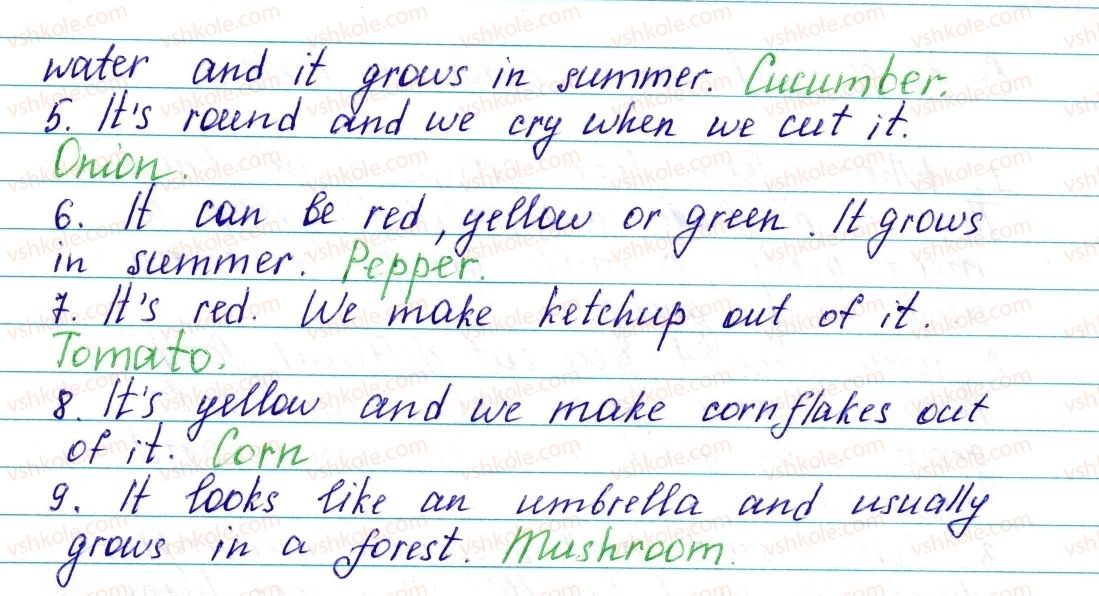 water and it grows in summer. Cucumber.
5. It's round and we cry when we cut it.
Onion.
6. It can be red, yellow or green. It grows
in summer. Pepper.
7. It's red. We make ketchup out of it.
Tomato.
8. It's yellow and we make cornflakes out
of it. Corn
9. It looks like an umbrella and usually
grows in a forest. Mushroom.